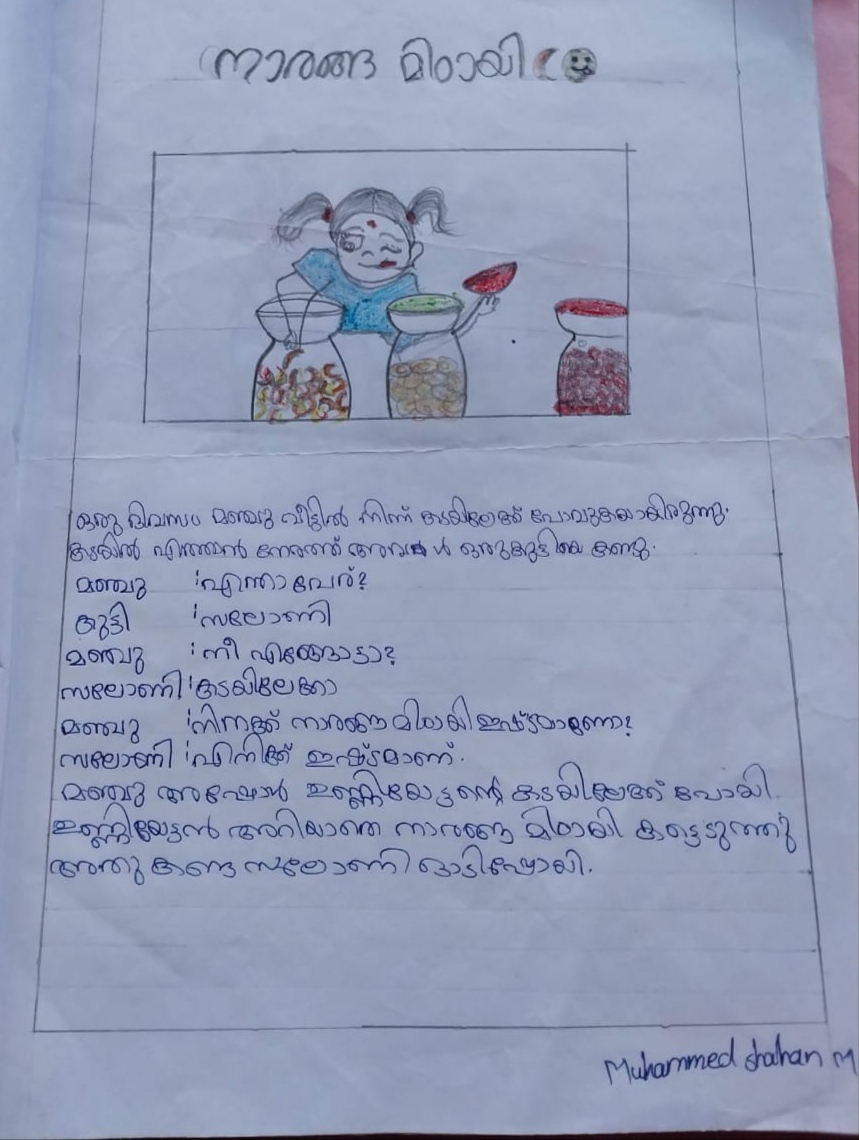 നാരങ്ങ മിഠായി
ഒരു ദിവസം മഞ്ചു വീട്ടിൽ നിന്ന് കടയിലേക്ക് പോവുകയായിരുന്നു.
കടയിൽ എത്താൻ നേരത്ത് അവൾ ഒരു കുട്ടിയെ കണ്ടു.
മഞ്ചു : എന്താ പേര്?
കുട്ടി : സലോണി
മഞ്ചു : നീ എങ്ങോട്ടാ?
സലോണി : കടയിലേക്കാ
മഞ്ചു : നിനക്ക് നാരങ്ങ മിഠായി ഇഷ്ട്ടമാണോ?
സലോണി : എനിക്ക് ഇഷ്ട്ടമാണ്.
മഞ്ചു അപ്പോൾ ഉണ്ണിയേട്ടന്റെ കടയിലേക്ക് പോയി.
ഉണ്ണിയേട്ടൻ അറിയാതെ നാരങ്ങ മിഠായി കട്ടെടുത്തു
അതു കണ്ട സലോണി ഓടിപ്പോയി.
Muhammed shahan M